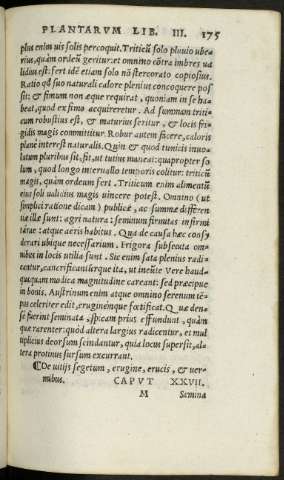 PLANTARVM LIB. III. 175
plus enim uis solis percoquit. Triticũ solo pluuio ube-
rius, quàm ordeũ geritur: et omnino cõtra imbres ua
lidius est: fert idẽ etiam solo nõ stercorato copiosius.
Ratio q̃ suo naturali calore plenius concoquere pos
sit: & fimum non æque requirat, quoniam in se ha-
beat, quod ex fimo acquireretur. Ad summam triti-
cum robustius est, & maturius seritur, & locis fri-
gidis magis committitur. Robur autem facere, caloris
planè interest naturalis. Quin & quod tunicis inuo-
lutum pluribus sit, fit, ut tutius maneat: quapropter so
lum, quod longo interuallo temporis colitur: triticũ
magis, quàm ordeum fert. Triticum enim alimentũ
eius soli ualidius magis uincere potest. Omnino (ut
simplici ratione dicam) publicè, ac summæ differen
tiæ illæ sunt: agri natura: seminum firmitas infirmi
tasue: atque aeris habitus. Qua de causa hæc consy
derari ubique necessarium. Frigora subsecuta om-
nibus in locis utilia sunt. Sic enim sata plenius radi-
centur, cancrificantúrque ita, ut ineunte Vere haud-
quaquam modica magnitudine careant: sed præcipue
in bonis. Austrinum enim atque omnino serenum tẽ-
pus celeriter edit, eruginémque fœtificat. Quæ den-
se fuerint seminata, spicam prius effundunt, quàm
quæ rarenter: quòd altera largius radicentur, et mul
tiplicius deorsum scindantur, quia locus supersit, al-
tera protinus sursum excurrant.
De uitijs segetum, erugine, erucis, & uer-
mibus. CAPVT XXVII.
M Semina